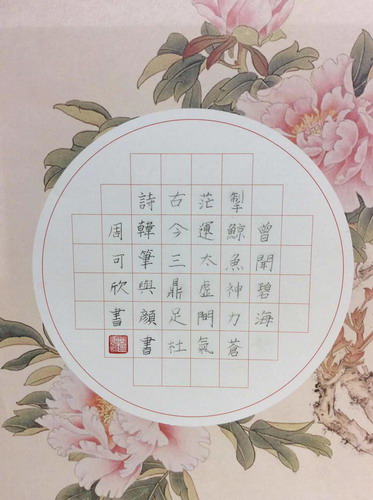 曾聞碧海
掣鯨魚神力蒼
茫運太虛間氣
古今三鼎足杜
詩韓筆與顏書
周可欣書